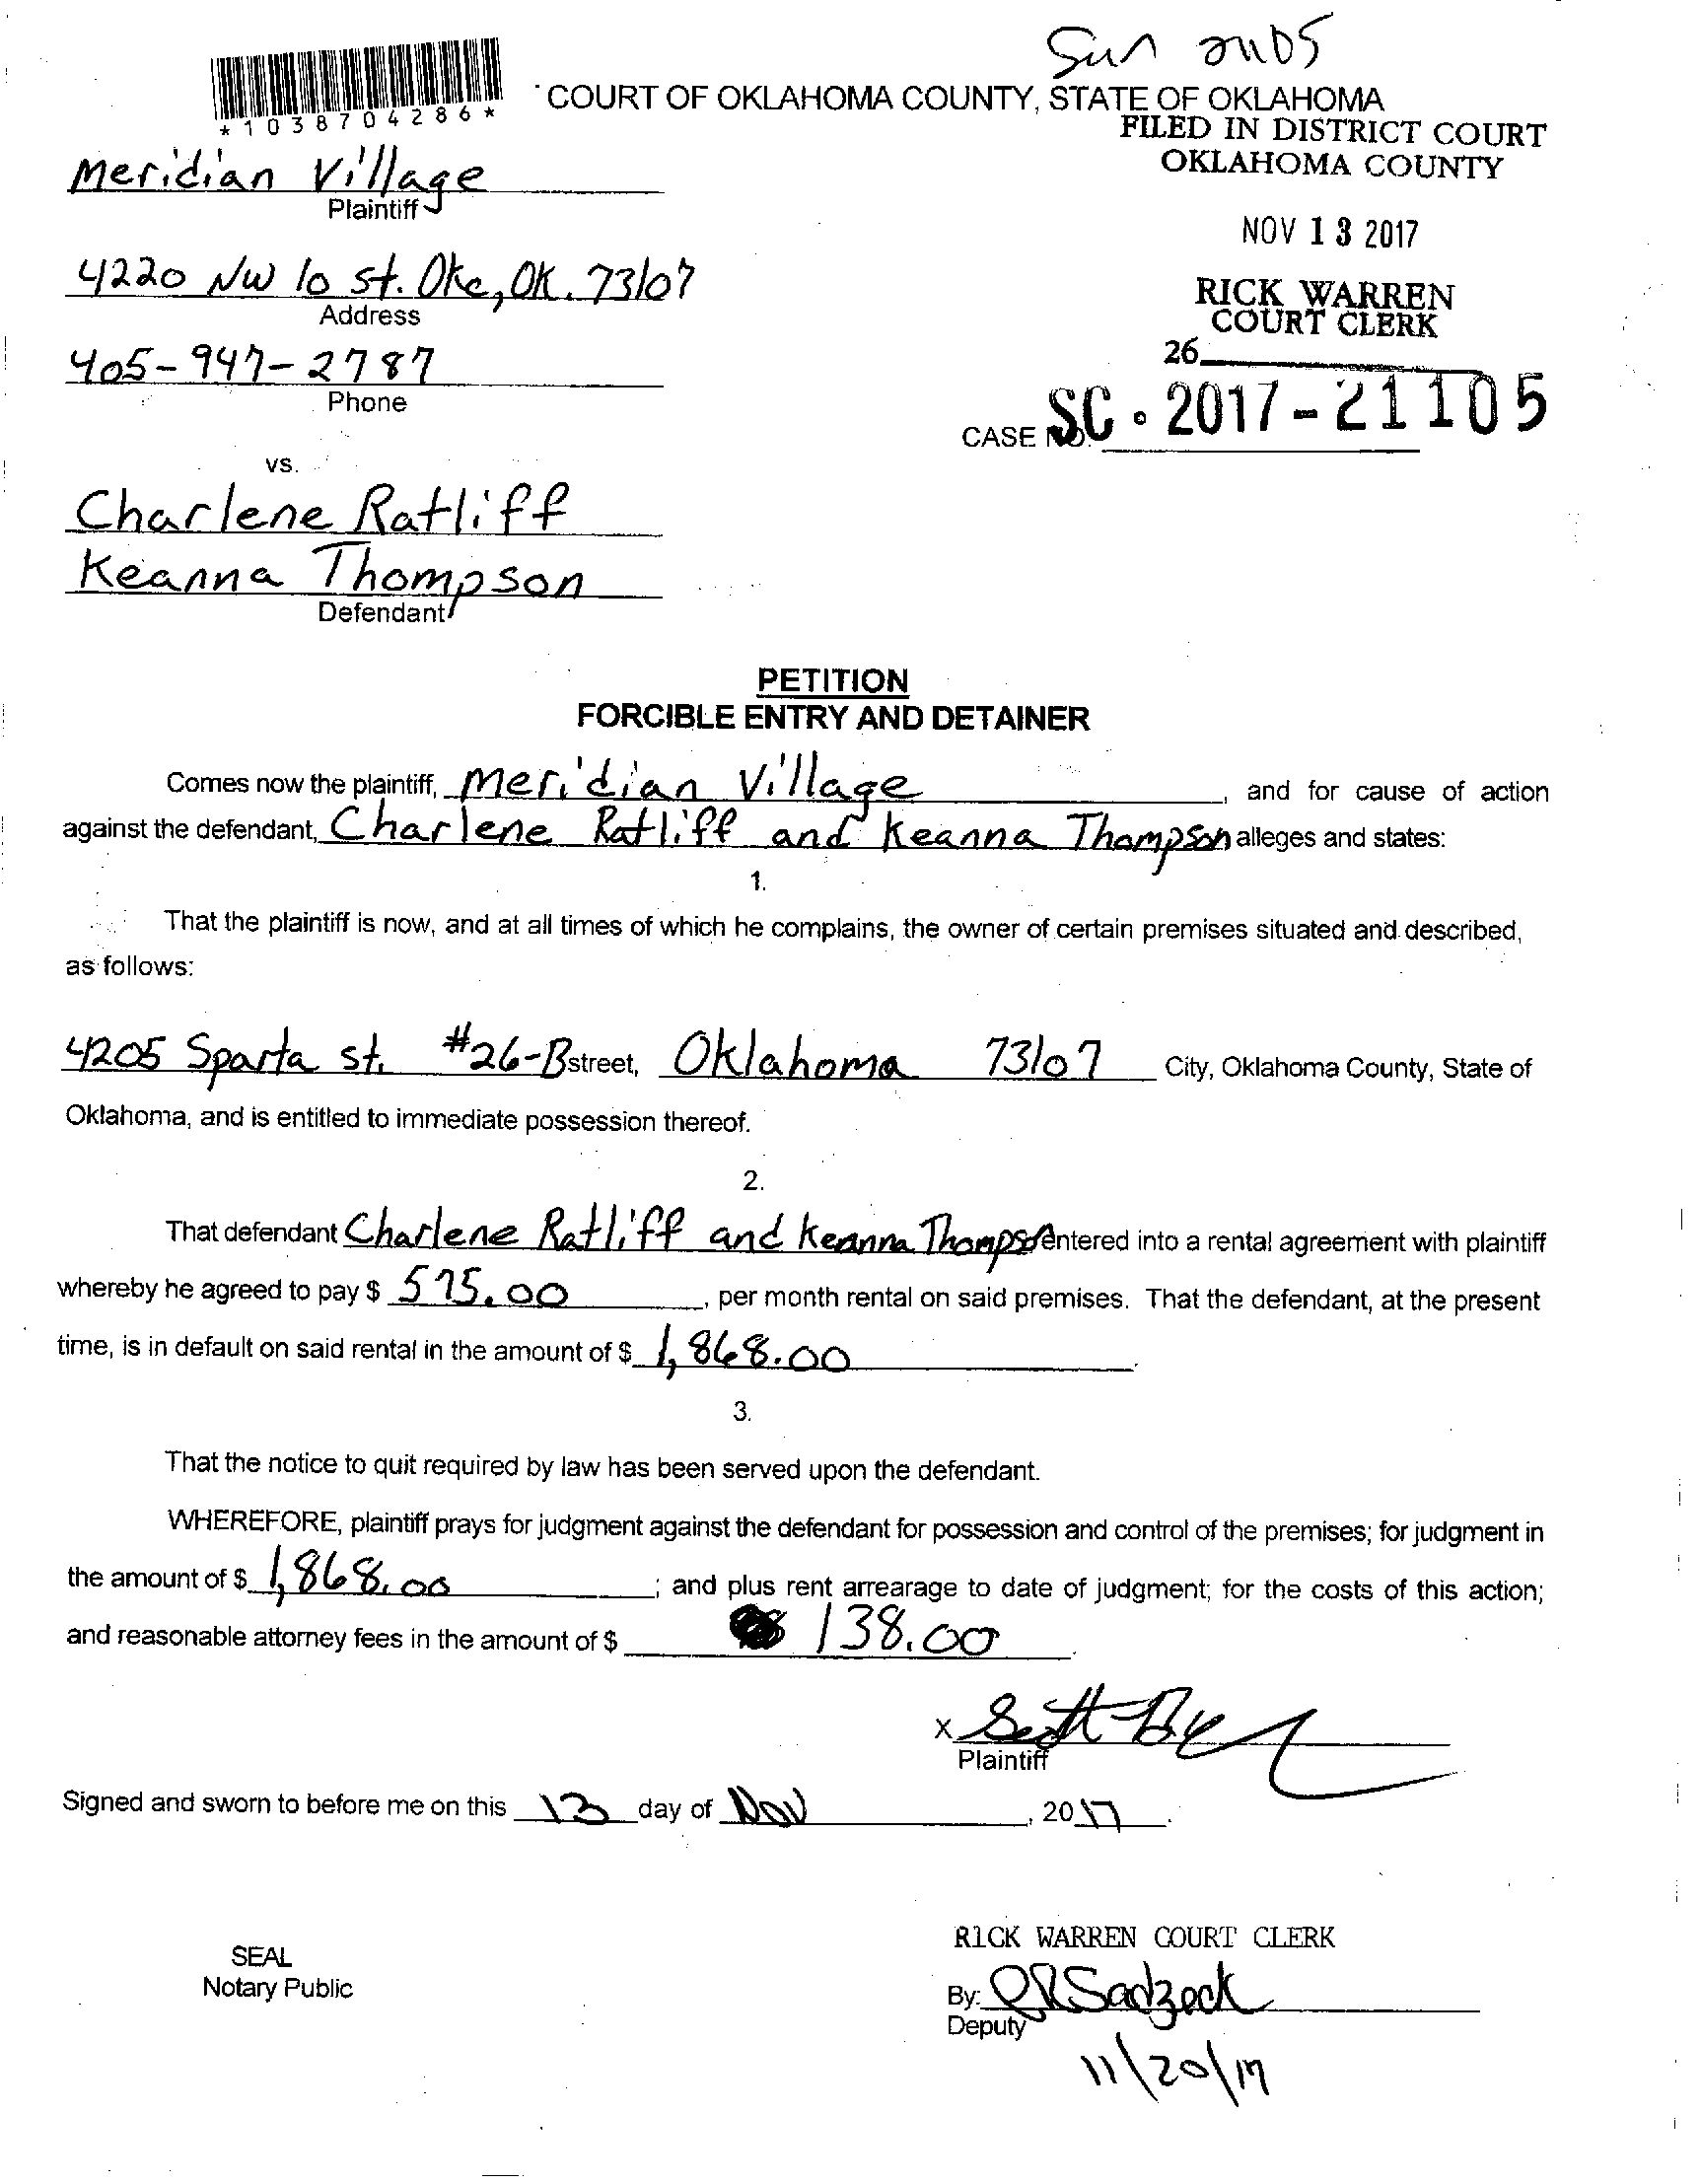 *1038704286*
COURT OF OKLAHOMA COUNTY, STATE OF OKLAHOMA
FILED IN DISTRICT COURT
OKLAHOMA COUNTY
Meridian Village
Plaintiff
NOV 13 2017
4220 NW 10 St. Okc, OK. 73107
Address
RICK WARREN
COURT CLERK
405-947-2787
Phone
26
CASE NO. SC-2017-21105
vs.
Charlene Ratliff
Keanna Thompson
Defendant
PETITION
FORCIBLE ENTRY AND DETAINER
Comes now the plaintiff, Meridian Village, and for cause of action
against the defendant, Charlene Ratliff and Keanna Thompson alleges and states:
1.
That the plaintiff is now, and at all times of which he complains, the owner of certain premises situated and described,
as follows:
4205 Sparta St. #26-B street, Oklahoma 73107 City, Oklahoma County, State of
Oklahoma, and is entitled to immediate possession thereof.
2.
That defendant Charlene Ratliff and Keanna Thompson entered into a rental agreement with plaintiff
whereby he agreed to pay $ 575.00, per month rental on said premises. That the defendant, at the present
time, is in default on said rental in the amount of $ 1,868.00.
3.
That the notice to quit required by law has been served upon the defendant.
WHEREFORE, plaintiff prays for judgment against the defendant for possession and control of the premises; for judgment in
the amount of $ 1,868.00; and plus rent arrearage to date of judgment; for the costs of this action;
and reasonable attorney fees in the amount of $ 138.00.
X
Plaintiff
Signed and sworn to before me on this 13 day of Nov, 2017.
RICK WARREN COURT CLERK
SEAL
Notary Public
By:
Deputy
11/20/17